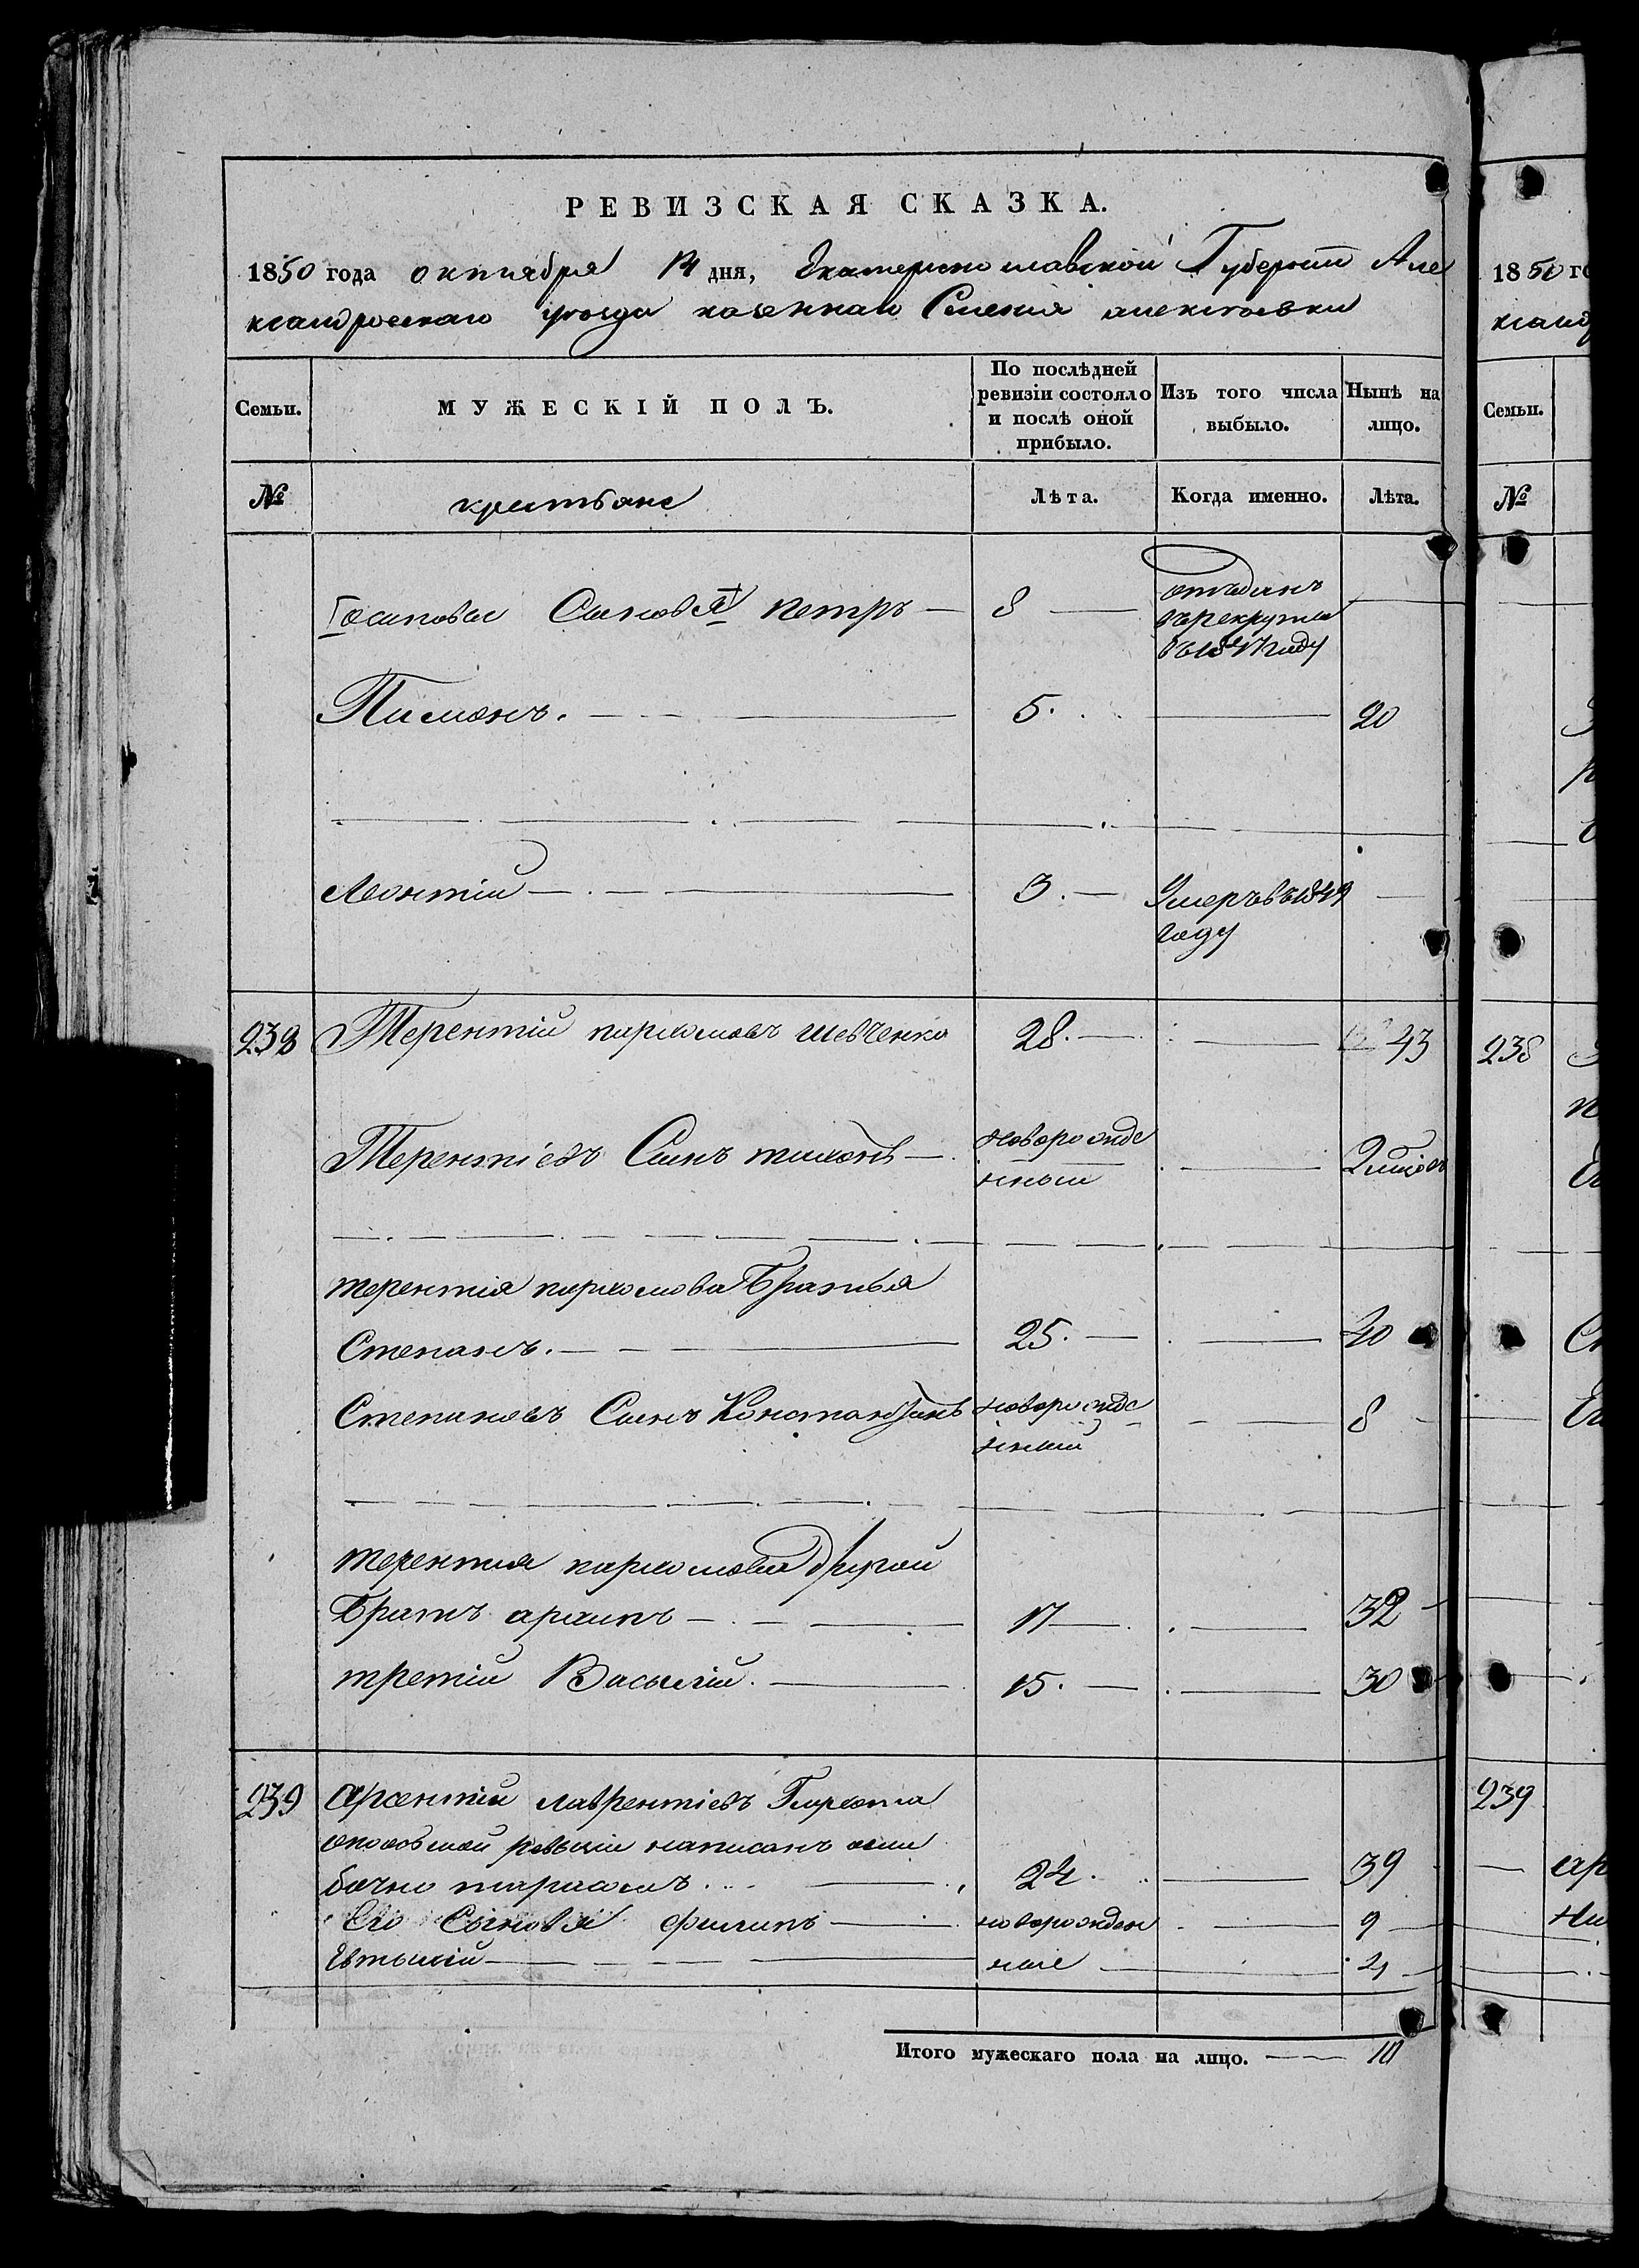 РЕВИЗСКАЯ СКАЗКА.
1850 года октября 14 дня, Екатеринославской Губернии Але
ксандровскаго уезда казеннаго Селения алексѣевки
Семьи.
МУЖЕСКІЙ ПОЛЪ.
По послѣдней ревизіи состояло и послѣ оной прибыло.
Изъ того числа выбыло.
Нынѣ на лицо.
№ крестьяне Лѣта. Когда именно. Лѣта.
Іосиповы Сыновя 1 петръ — 8 — отъданъ
въ рекруты
въ 1847 году
Пимонъ. 5. — 20
Леонтій — 3. — Умеръ въ 1849
году
238 Терентій пархомовъ шевченко 28. — 43
Терентіевъ Сынъ тихонъ — новорожде
нный — 2
терентія пархомова Братья
Степанъ. — 25. — 40
Степановъ Сынъ Константинъ новорожде
нный — 8
терентия пархомова другой
Братъ архипъ — 17 — 32
третій Василій. — 15. — 30
239 Арсентій лаврентіевъ
ревизіи написанъ оши
бочно тарасомъ. — 24. — 39
Его Сыновя филипъ — новорожден — 9
Евтыхій — ные — 4
Итого мужескаго пола на лицо. — 10
1850 го
ксанд
Семьи.
№
238
239
ар